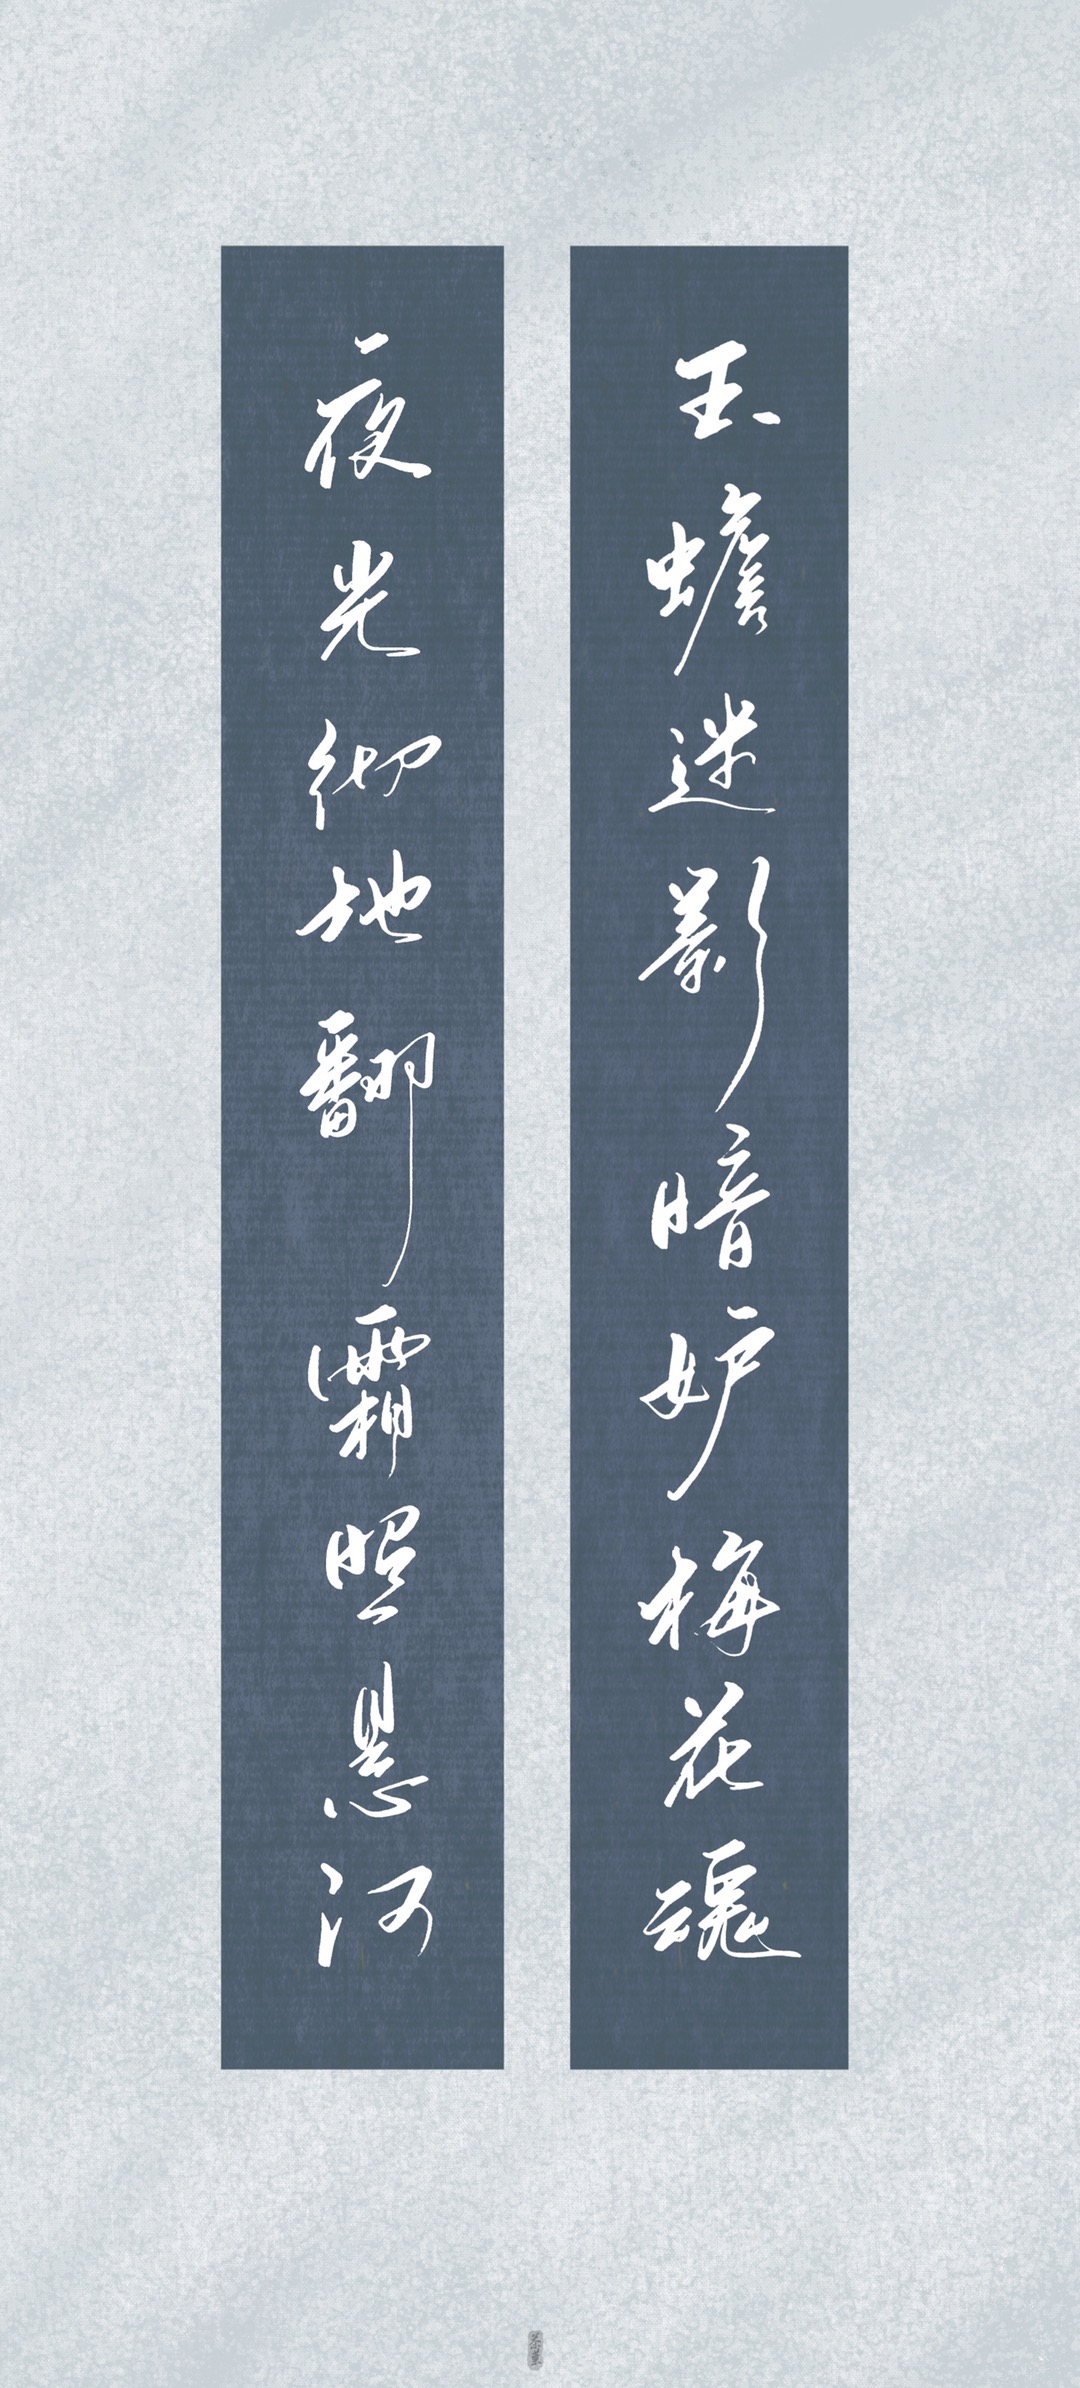 玉蟾迷影暗妒梅花魂
夜光彻地翻霜照悬河